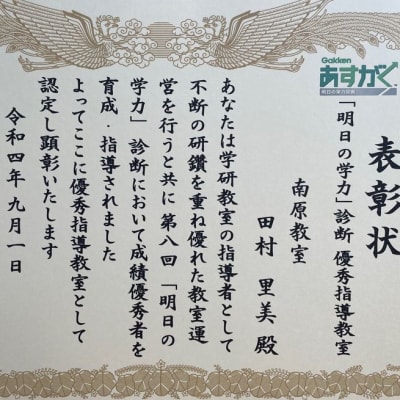 Gakken
あすがく
明日の学力診断
表彰状
「明日の学力」診断 優秀指導教室
南原教室
田村 里美 殿
あなたは学研教室の指導者として
不断の研鑽を重ね優れた教室運
営を行うと共に 第八回 「明日の
学力」 診断において成績優秀者を
育成・指導されました
よってここに優秀指導教室として
認定し顕彰いたします
令和四年九月一日